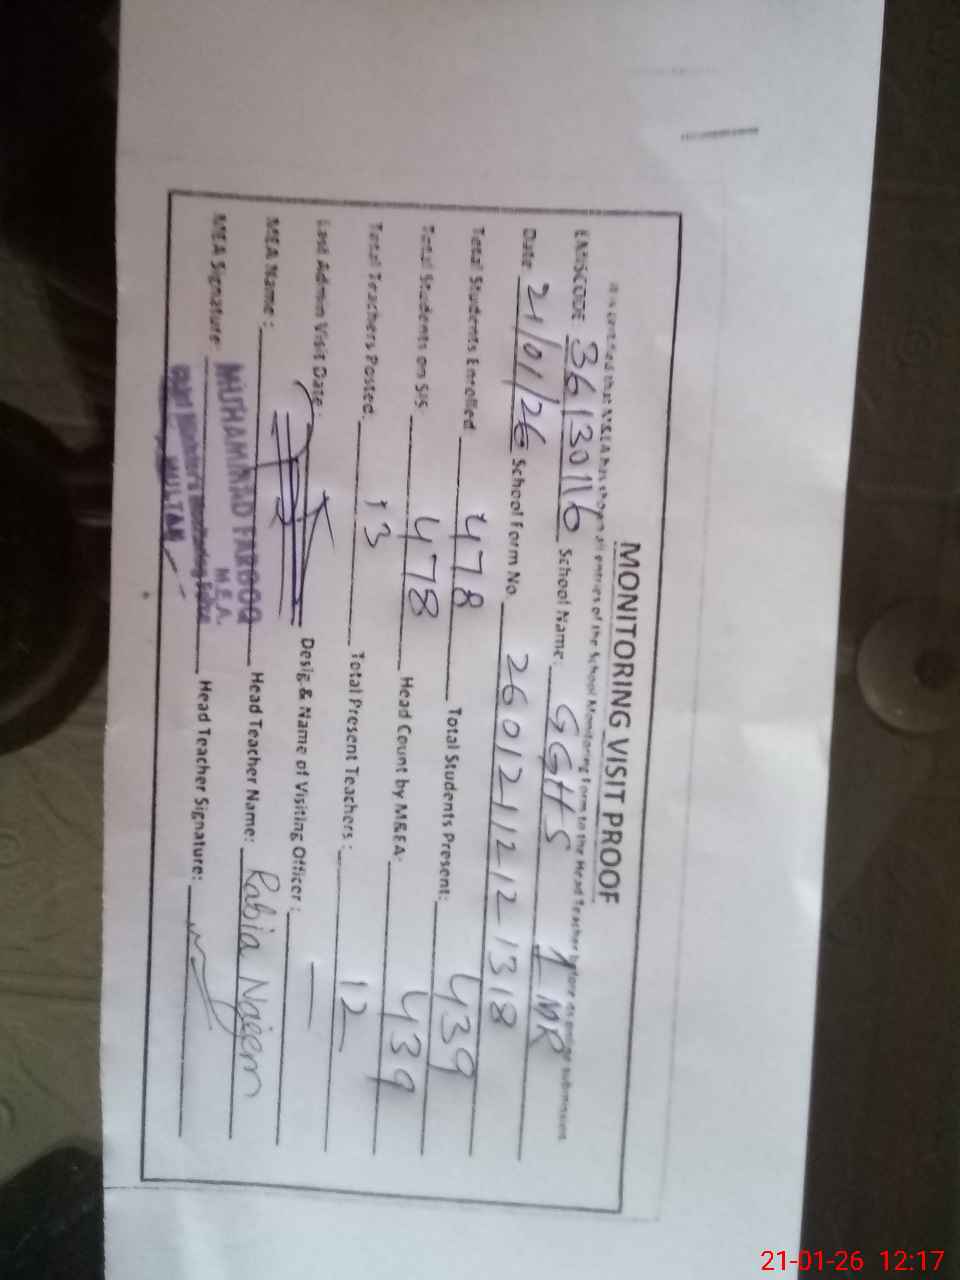 MONITORING VISIT PROOF
It is certified that M&EA has shown all entries of the School Monitoring Form to the Head Teacher before submission
EMISCODE: 36130116 School Name: GGHS 1 MR
Date: 21/01/26 School Form No. 26012112121318
Total Students Enrolled 478 Total Students Present: 439
Total Students on SIS 478 Head Count by M&EA: 439
Total Teachers Posted: 13 Total Present Teachers: 12
Last Admin Visit Date: Desig.& Name of Visiting Officer: —
MEA Name: MUHAMMAD FAROOQ Head Teacher Name: Rabia Naeem
M.E.A.
MEA Signature: Head Teacher Signature:
Chief Minister's Monitoring Force
MULTAN
21-01-26 12:17